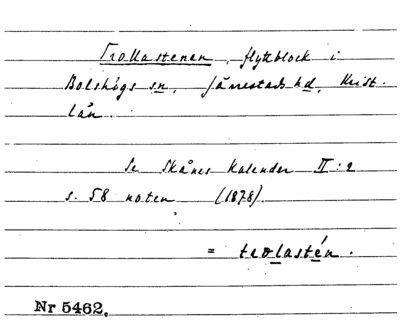 Trollastenen, flyttblock i
Bolshögs sn, Järrestads hd, Krist.
län.
Se Skånes Kalender II:2
s. 58 noten (1878).
= trolastén.
Nr 5462.